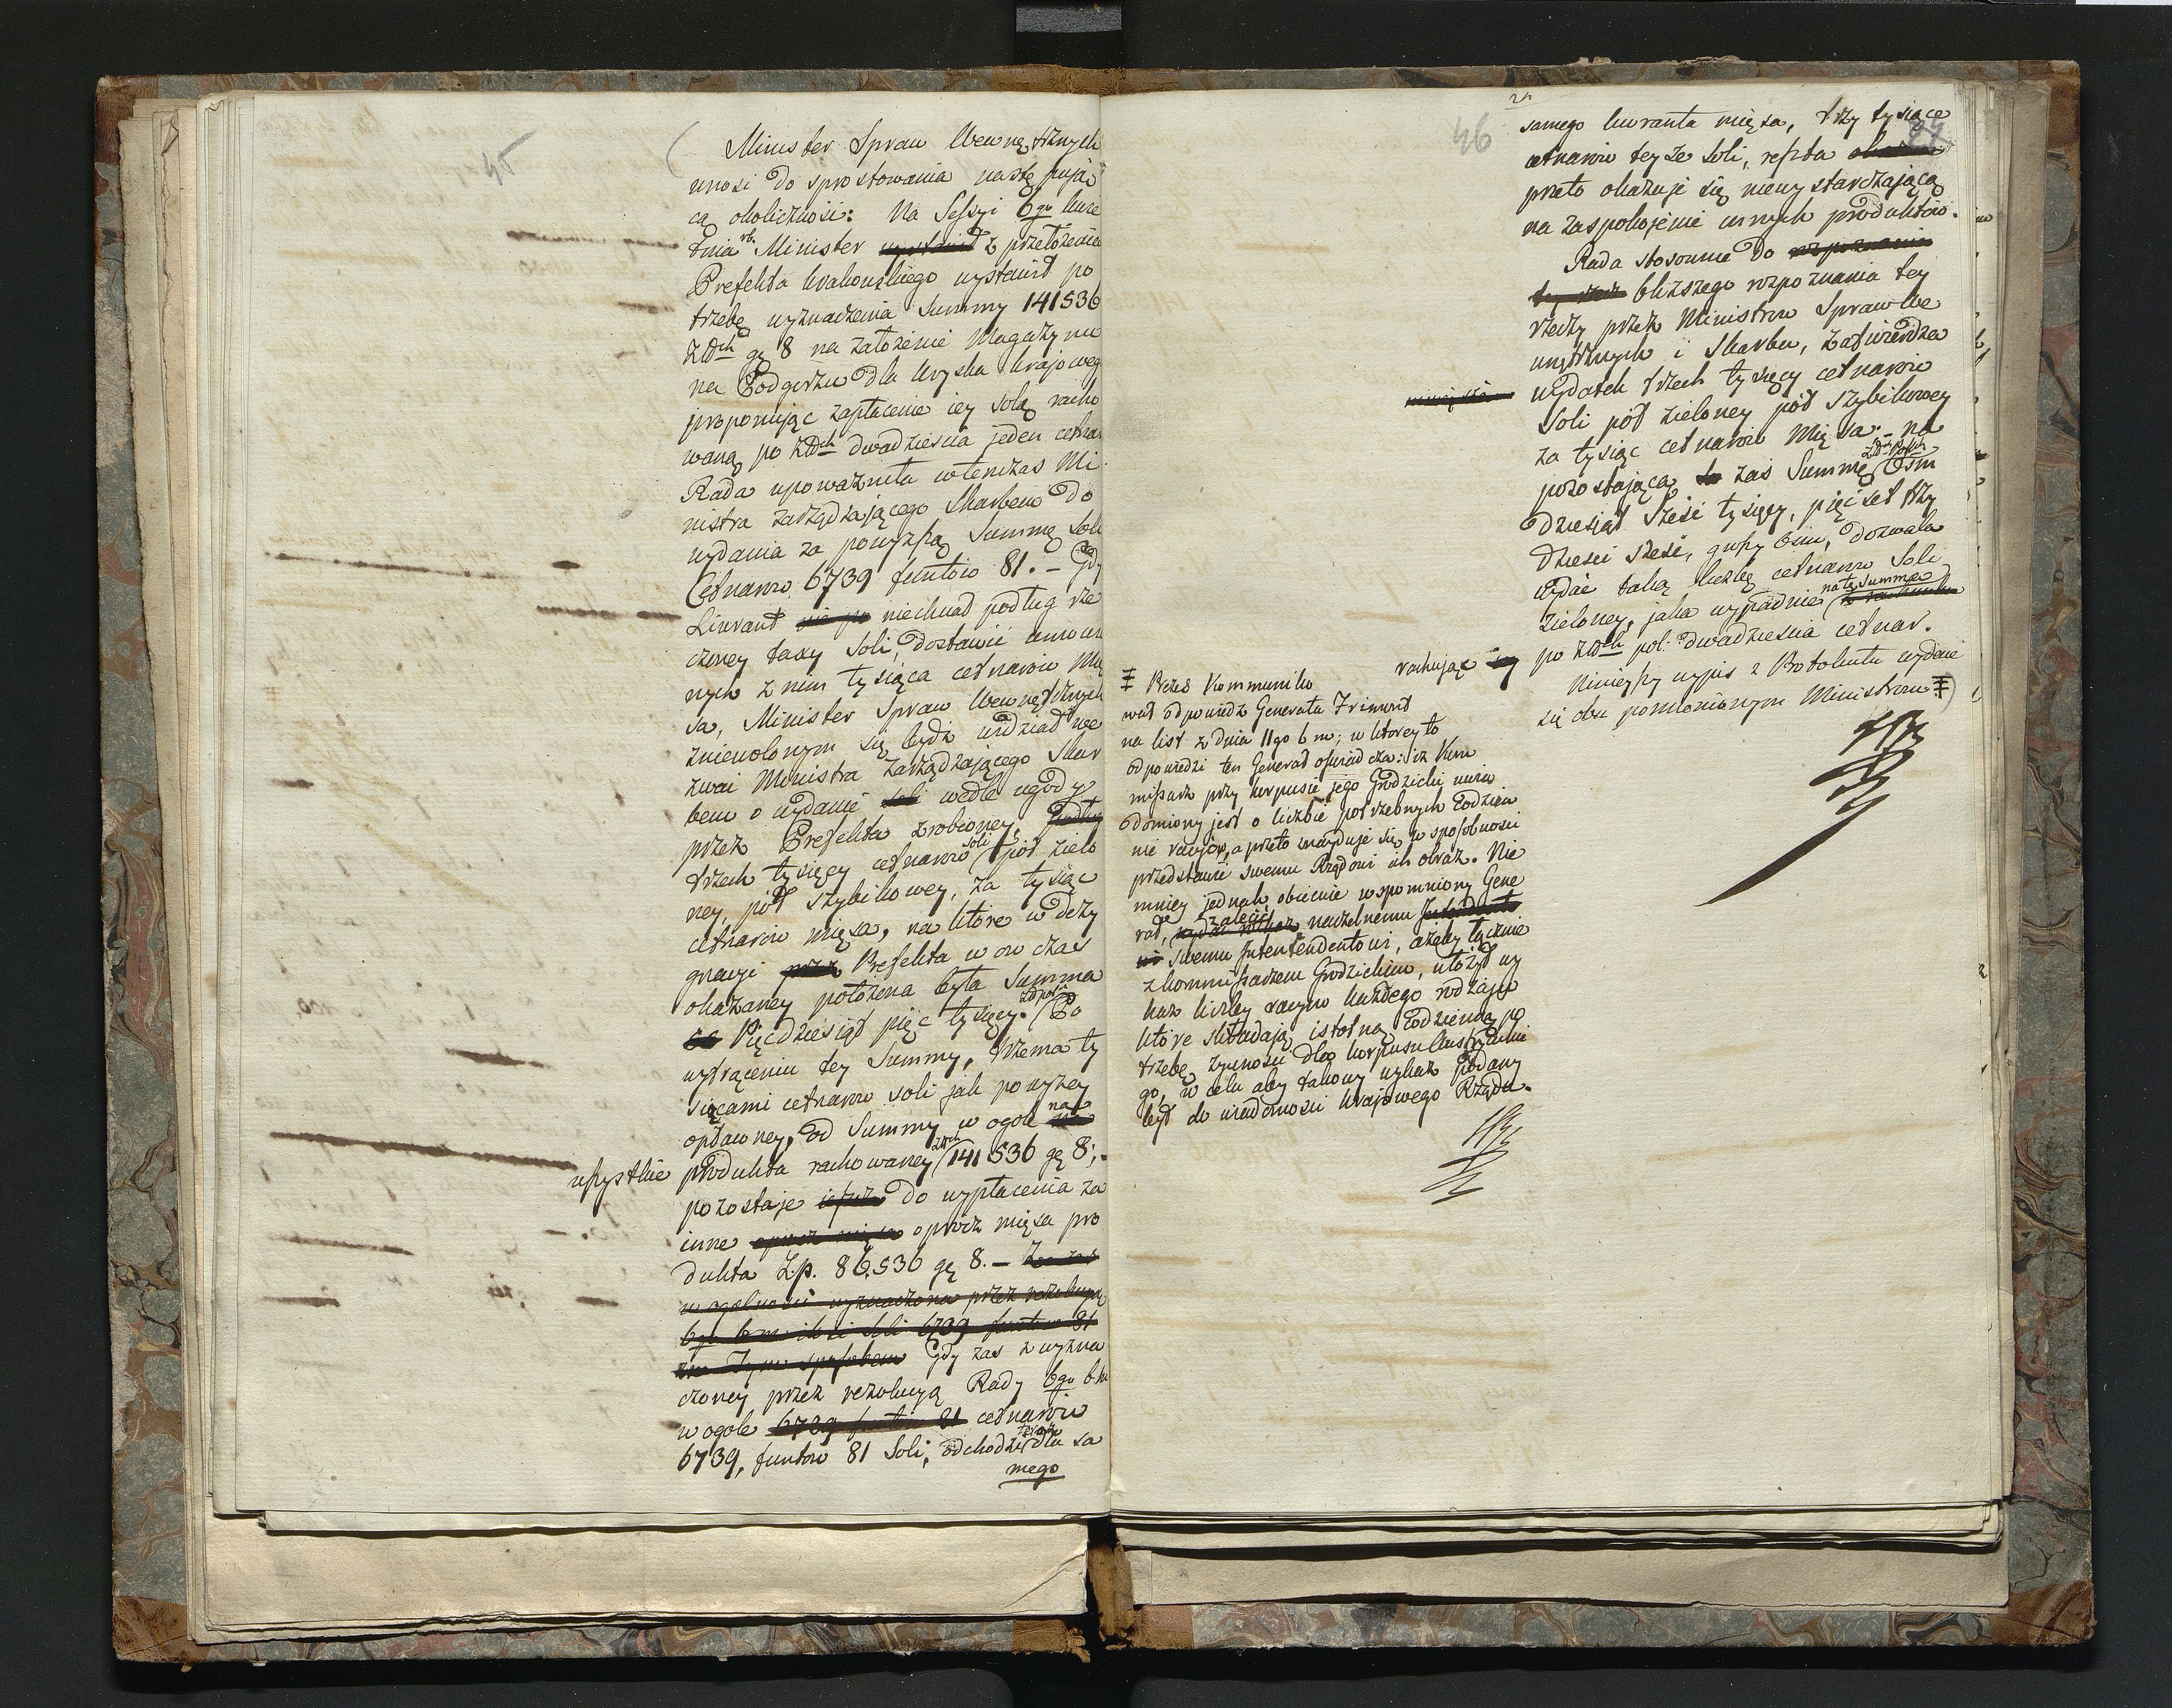 45
Minister Spraw Wewnętrznych
wnosi do sprostowania następują
cą okoliczność: Na Sessyi 6go kwie
tnia rb. Minister wystawił z przełożenia
Prefekta krakowskiego wystawił po
trzebę wyznaczenia Summy 141536
Złłch gę 8 na założenie Magazynu
na Podgórzu dla woyska kraioweg
proponując zapłacenie iey solą racho
waną po Złłch dwadzieścia jeden cetnar
Rada upoważniła wtenczas Mi
nistra zarządzającego Skarbem do
wydania za powyższą Summę soli
Cetnarów 6739 funtów 81. – Gdy
Liwerant niechciał podług rze
czoney taxy Soli, dostawić umówio
nych z nim tysiąca cetnarów Mię
sa, Minister Spraw Wewnętrznych
zniewolonym się bydź widział we
zwać Ministra zarządzającego Skar
bem o wydanie soli wedle ugody
przez Prefekta zrobioney, podług
trzech tysięcy cetnarów soli pół zielo
ney, pół szybikowey, za tysiąc
cetnarów mięsa, na które w dezy
gnacyi przez Prefekta w ow czas
okazaney położona była Summa
Pięćdziesiąt pięć tysięcy. Złłpol: Po
wytrąceniu tey Summy, trzema ty
siącami cetnarów soli jak powyżey
opławney, od Summy w ogole na
wszystkie produkta rachowaney Złłch 141536 gę 8;
pozostaje ieszcze do wypłacenia za
inne oprócz mięsa oprócz mięsa pro
dukta Zp. 86,536 gę 8. – Że zaś
w ogólności wyznaczona przez rezolucyę
6go b.m. ilość Soli 6739 funtów 81
tym sposobem Gdy zaś z wyzna
czoney przez rezolucyą Rady 6go b m
w ogole 6739 funtów 81 cetnarów
6739, funtów 81 Soli, odchodzi dla sa
mego
46
samego liweranta mięsa, trzy tysiące
cetnarów teyże soli, reszta
przeto okazuje się niewystarczającą
na zaspokojenie innych produktów.
Rada stosownie do rozpoznania
bliższego rozpoznania tey
rzeczy przez Ministrów Spraw We
wnętrznych i Skarbu, zatwierdza
wydatek trzech tysięcy cetnarów
Soli pół zieloney pół szybikowey
za tysiąc cetnarów Mięsa – na
pozostającą zaś Summę Złłch Polsk: Ośm
dziesiąt sześć tysięcy, pięćset trzy
dzieści sześć, groszy ośm, dozwala
wydać taką liczbę cetnarów Soli
zieloney, jaka wypadnie na tę Summę
rachując po Złłch pol: dwadzieścia cetnar.
Ninieyszy wypis z Protokułu wydać
się obu pomienionym Ministrom
Prezes Kommuniko
wał odpowiedź Generała Frimont
na list z dnia 11go b m; w którey to
odpowiedzi ten Generał oświadcza: iż Kom
missarz przy korpusie jego Grodzicki uwia
domiony jest o liczbie potrzebnych Codzien
nie racyów, a przeto znayduje się w sposobności
przedstawić swemu Rządowi ich obraz. Nie
mniey jednak obiecuie wspomniony Gene
rał, zalecić naczelnemu Intendento
wi swemu Intendentowi, ażeby łącznie
z kommissarzem Grodzickim, ułożył wy
kaz liczby racyów każdego rodzaju
które składają istotną Codzienną po
trzebę żywności dla korpusu Austryackie
go, w celu aby takowy wykaz podany
był do wiadomości krajowego Rządu.